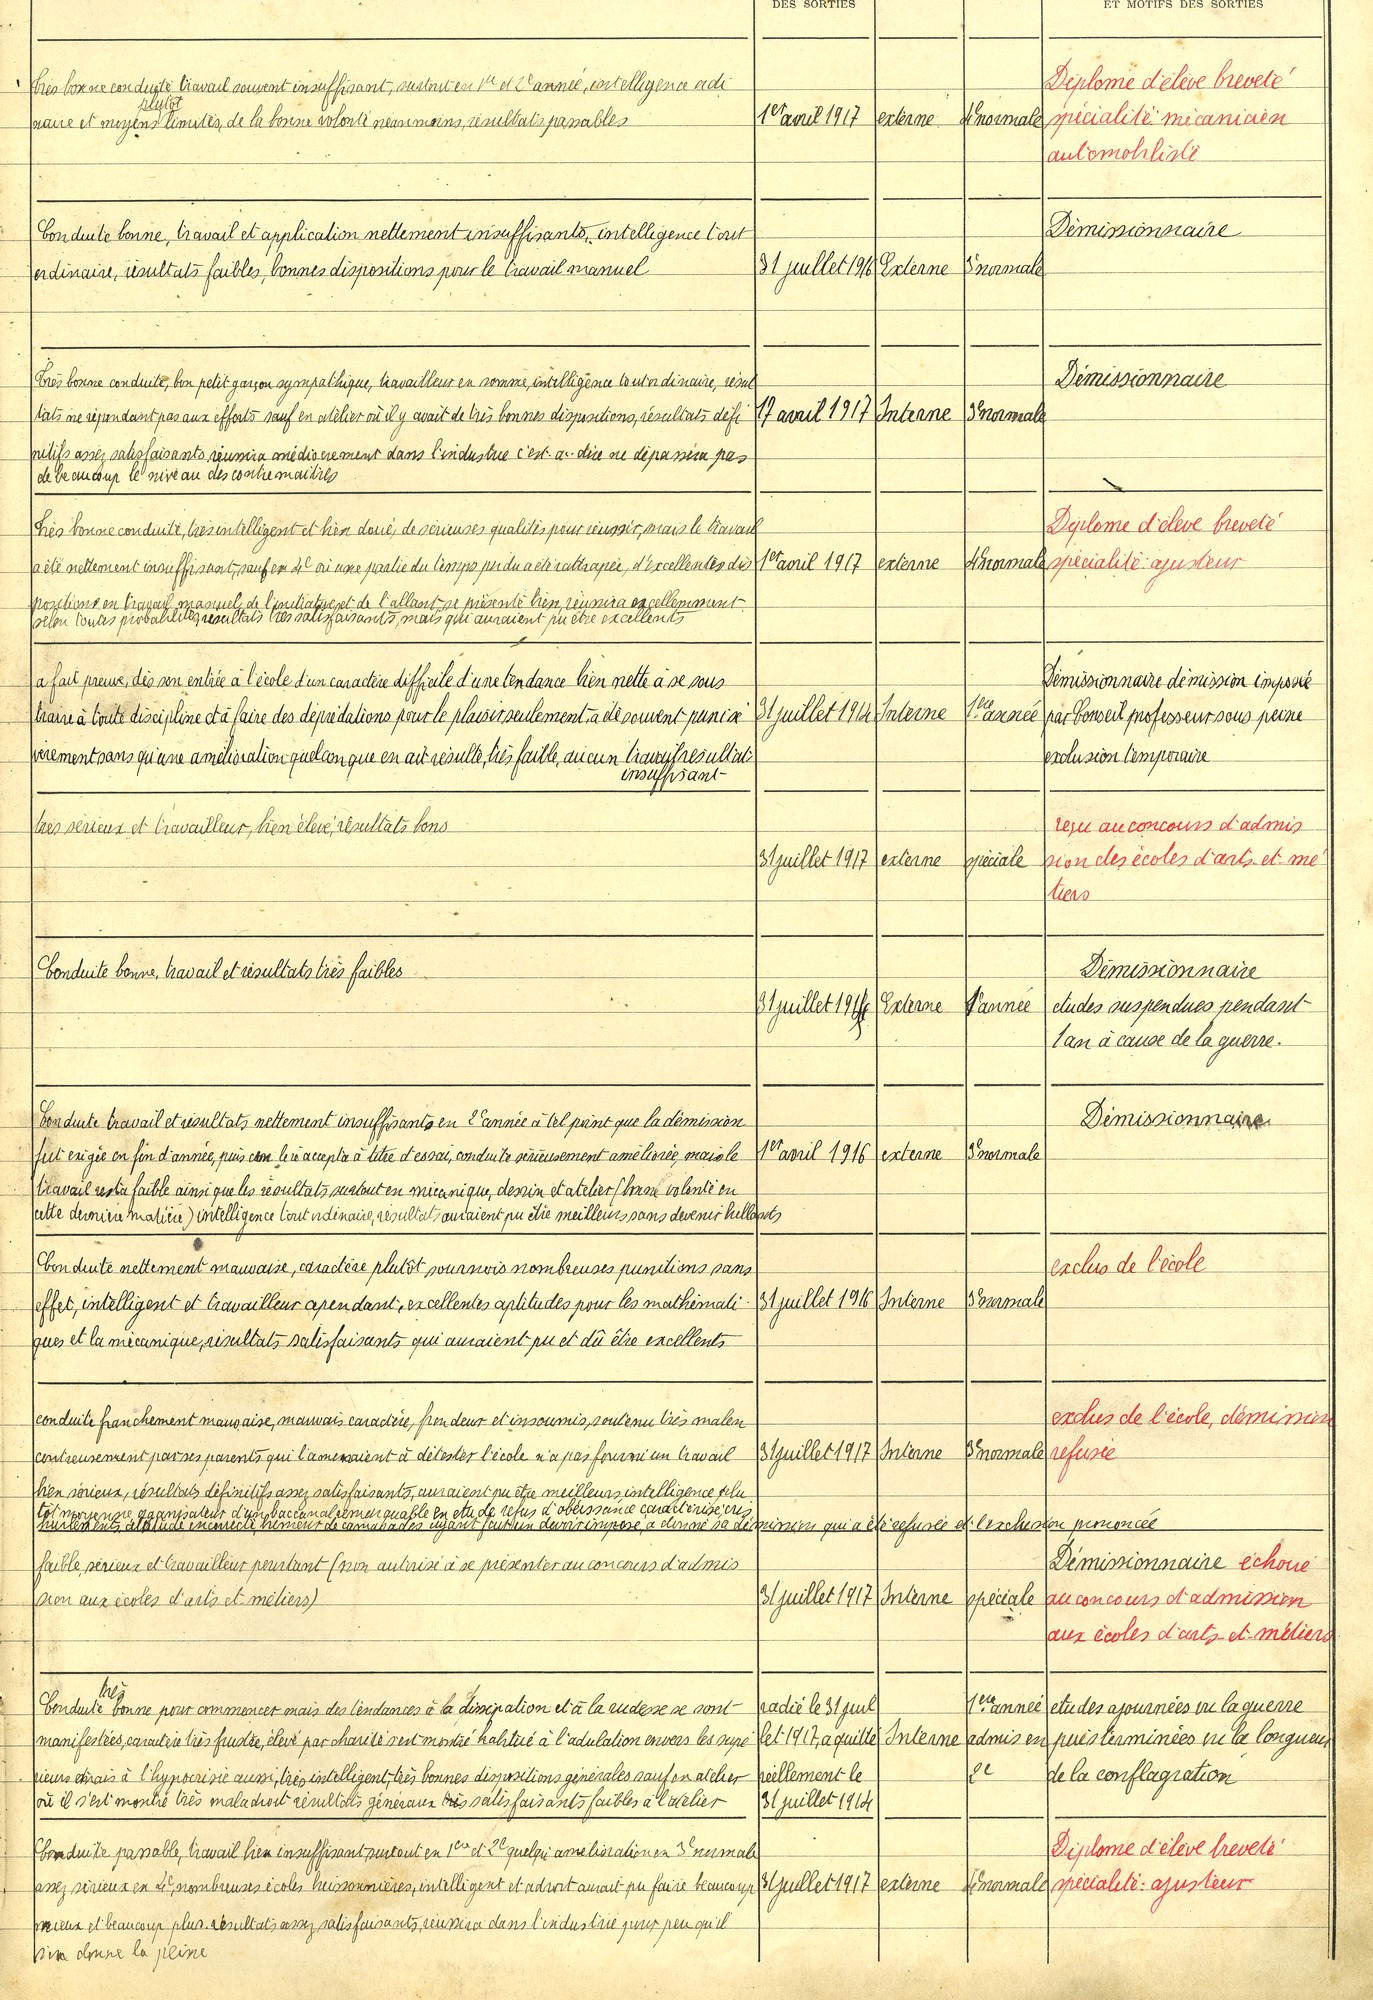 DES SORTIES
ET MOTIFS DES SORTIES
Très bonne conduite travail souvent insuffisant, surtout en 1re et 2e année, intelligence ordi
plutôt
naire et moyens limités, de la bonne volonté néanmoins, résultats passables
1er avril 1917 externe 4e normale
Diplome d'élève breveté
spécialité mécanicien
automobiliste
Conduite bonne, travail et application nettement insuffisants, intelligence tout
ordinaire, résultats faibles, bonnes dispositions pour le travail manuel
31 juillet 1916 Externe 3e normale
Démissionnaire
Très bonne conduite, bon petit garçon sympathique, travailleur en somme, intelligence tout ordinaire, résul
tats ne répondant pas aux efforts sauf en atelier où il y avait de très bonnes dispositions, résultats défi
nitifs assez satisfaisants, réussira médiocrement dans l'industrie c'est-à-dire ne dépassera pas
de beaucoup le niveau des contremaîtres
17 avril 1917 Interne 3e normale
Démissionnaire
Très bonne conduite, très intelligent et bien doué, de sérieuses qualités pour réussir, mais le travail
a été nettement insuffisant, sauf en 4e où une partie du temps perdu a été rattrapée, d'excellentes dis
positions en travail manuel, de l'initiative et de l'allant se présente bien, réussira excellemment
selon toutes probabilités, résultats très satisfaisants, mais qui auraient pu être excellents
1er avril 1917 externe 4e normale
Diplome d'élève breveté
spécialité: ajusteur
a fait preuve, dès son entrée à l'école d'un caractère difficile d'une tendance bien nette à se sous
traire à toute discipline et à faire des déprédations pour le plaisir seulement, a été souvent puni sé
vèrement sans qu'une amélioration quelconque en ait résulté, très faible, aucun travail résultat
insuffisant
31 juillet 1914 Interne 1ère année
Démissionnaire démission imposée
par Conseil professeur sous peine
exclusion temporaire
très sérieux et travailleur, bien élevé, résultats bons
31 juillet 1917 externe spéciale
reçu au concours d'admis
sion des écoles d'arts et mé
tiers
Conduite bonne, travail et résultats très faibles
31 juillet 1914 Externe 1e année
Démissionnaire
etudes suspendues pendant
1 an à cause de la guerre.
Conduite travail et résultats nettement insuffisants en 2e année à tel point que la démission
fut exigée en fin d'année, puis on le réaccepta à titre d'essai, conduite sérieusement améliorée, mais le
travail resta faible ainsi que les résultats surtout en mécanique, dessin et atelier (bonne volonté en
cette dernière matière) intelligence tout ordinaire, résultats auraient pu être meilleurs sans devenir brillants
1er avril 1916 externe 3e normale
Démissionnaire
Conduite nettement mauvaise, caractère plutôt sournois nombreuses punitions sans
effet, intelligent et travailleur cependant, excellentes aptitudes pour les mathémati
ques et la mécanique, résultats satisfaisants qui auraient pu et dû être excellents
31 juillet 1916 Interne 3e normale
exclus de l'école
conduite franchement mauvaise, mauvais caractère, frondeur et insoumis, soutenu très malen
contreusement par ses parents qui l'amenaient à détester l'école n'a pas fourni un travail
bien sérieux, résultats définitifs assez satisfaisants, auraient pu être meilleurs, intelligence plu
tôt moyenne, organisateur d'un baccanal remarquable en etude refus d'obéissance caractérisé, cris
hurlements attitude incorrecte de camarades ayant fait un devoir imposé, a donné sa démission qui a été refusée et l'exclusion prononcée
31 juillet 1917 Interne 3e normale
exclus de l'école, démission
refusée
faible, sérieux et travailleur pourtant (non autorisé à se présenter au concours d'admis
sion aux écoles d'arts et métiers)
31 juillet 1917 Interne spéciale
Démissionnaire échoué
au concours d'admission
aux écoles d'arts et métiers
très
Conduite bonne pour commencer mais des tendances à la dissipation et à la rudesse se sont
manifestées, caractère très frustre, élevé par charité s'est montré habitué à l'adulation envers les supé
rieurs mais à l'hypocrisie aussi, très intelligent, très bonnes dispositions générales sauf en atelier
où il s'est montré très maladroit résultats généraux très satisfaisants faibles à l'atelier
radié le 31 juil
let 1917, a quitté
réellement le
31 juillet 1914
Interne
1ère année
admis en
2e
etudes ajournées vu la guerre
puis terminées vu la longueur
de la conflagration
Conduite passable, travail bien insuffisant surtout en 1re et 2e quelqu'amélioration en 3e normale
assez sérieux en 4e, nombreuses écoles buissonnières, intelligent et adroit aurait pu faire beaucoup
mieux et beaucoup plus. résultats assez satisfaisants, réussira dans l'industrie pour peu qu'il
s'en donne la peine
31 juillet 1917 externe 4e normale
Diplome d'élève breveté
spécialité: ajusteur